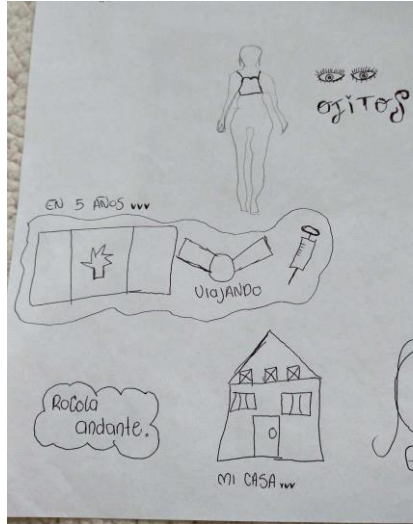 OJITOS
EN 5 AÑOS vvv
VIAJANDO
Rocola
andante.
MI CASA vvv